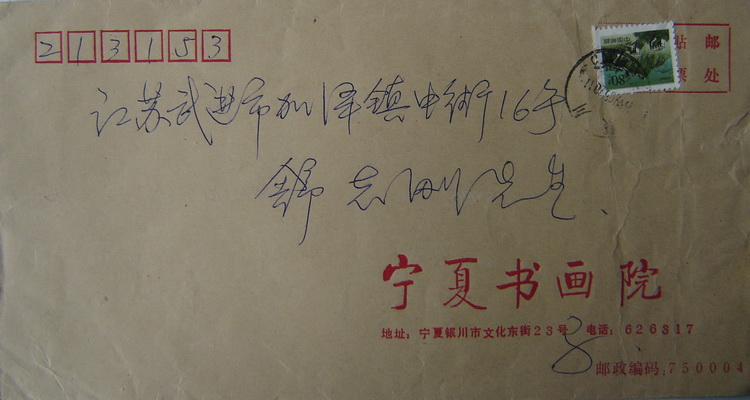 213153
贴邮
票处
江苏武进市加泽镇中街16号
志刚先生
宁夏书画院
地址：宁夏银川市文化东街23号 电话：626317
邮政编码：750004